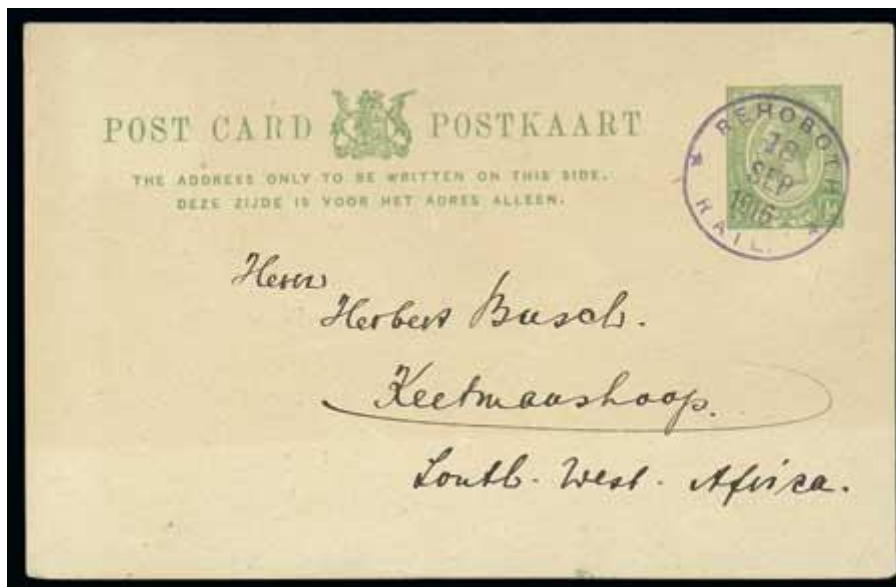 POST CARD POSTKAART
THE ADDRESS ONLY TO BE WRITTEN ON THIS SIDE.
DEZE ZIJDE IS VOOR HET ADRES ALLEEN.
REHOBOTH
18
SEP
1916
RAIL.
Herrn
Herbert Busch.
Keetmanshoop.
South-West-Africa.